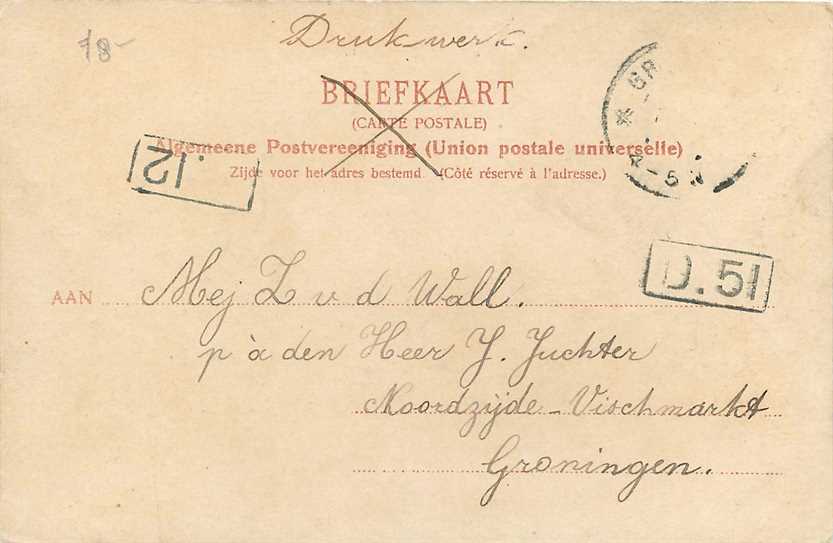 Drukwerk.
BRIEFKAART
(CARTE POSTALE)
Algemeene Postvereeniging (Union postale universelle)
Zijde voor het adres bestemd. (Côté réservé à l'adresse.)
.12
D.51
AAN Mej Z v d Wall.
p à den Heer J. Juchter
Noordzijde-Vischmarkt
Groningen.